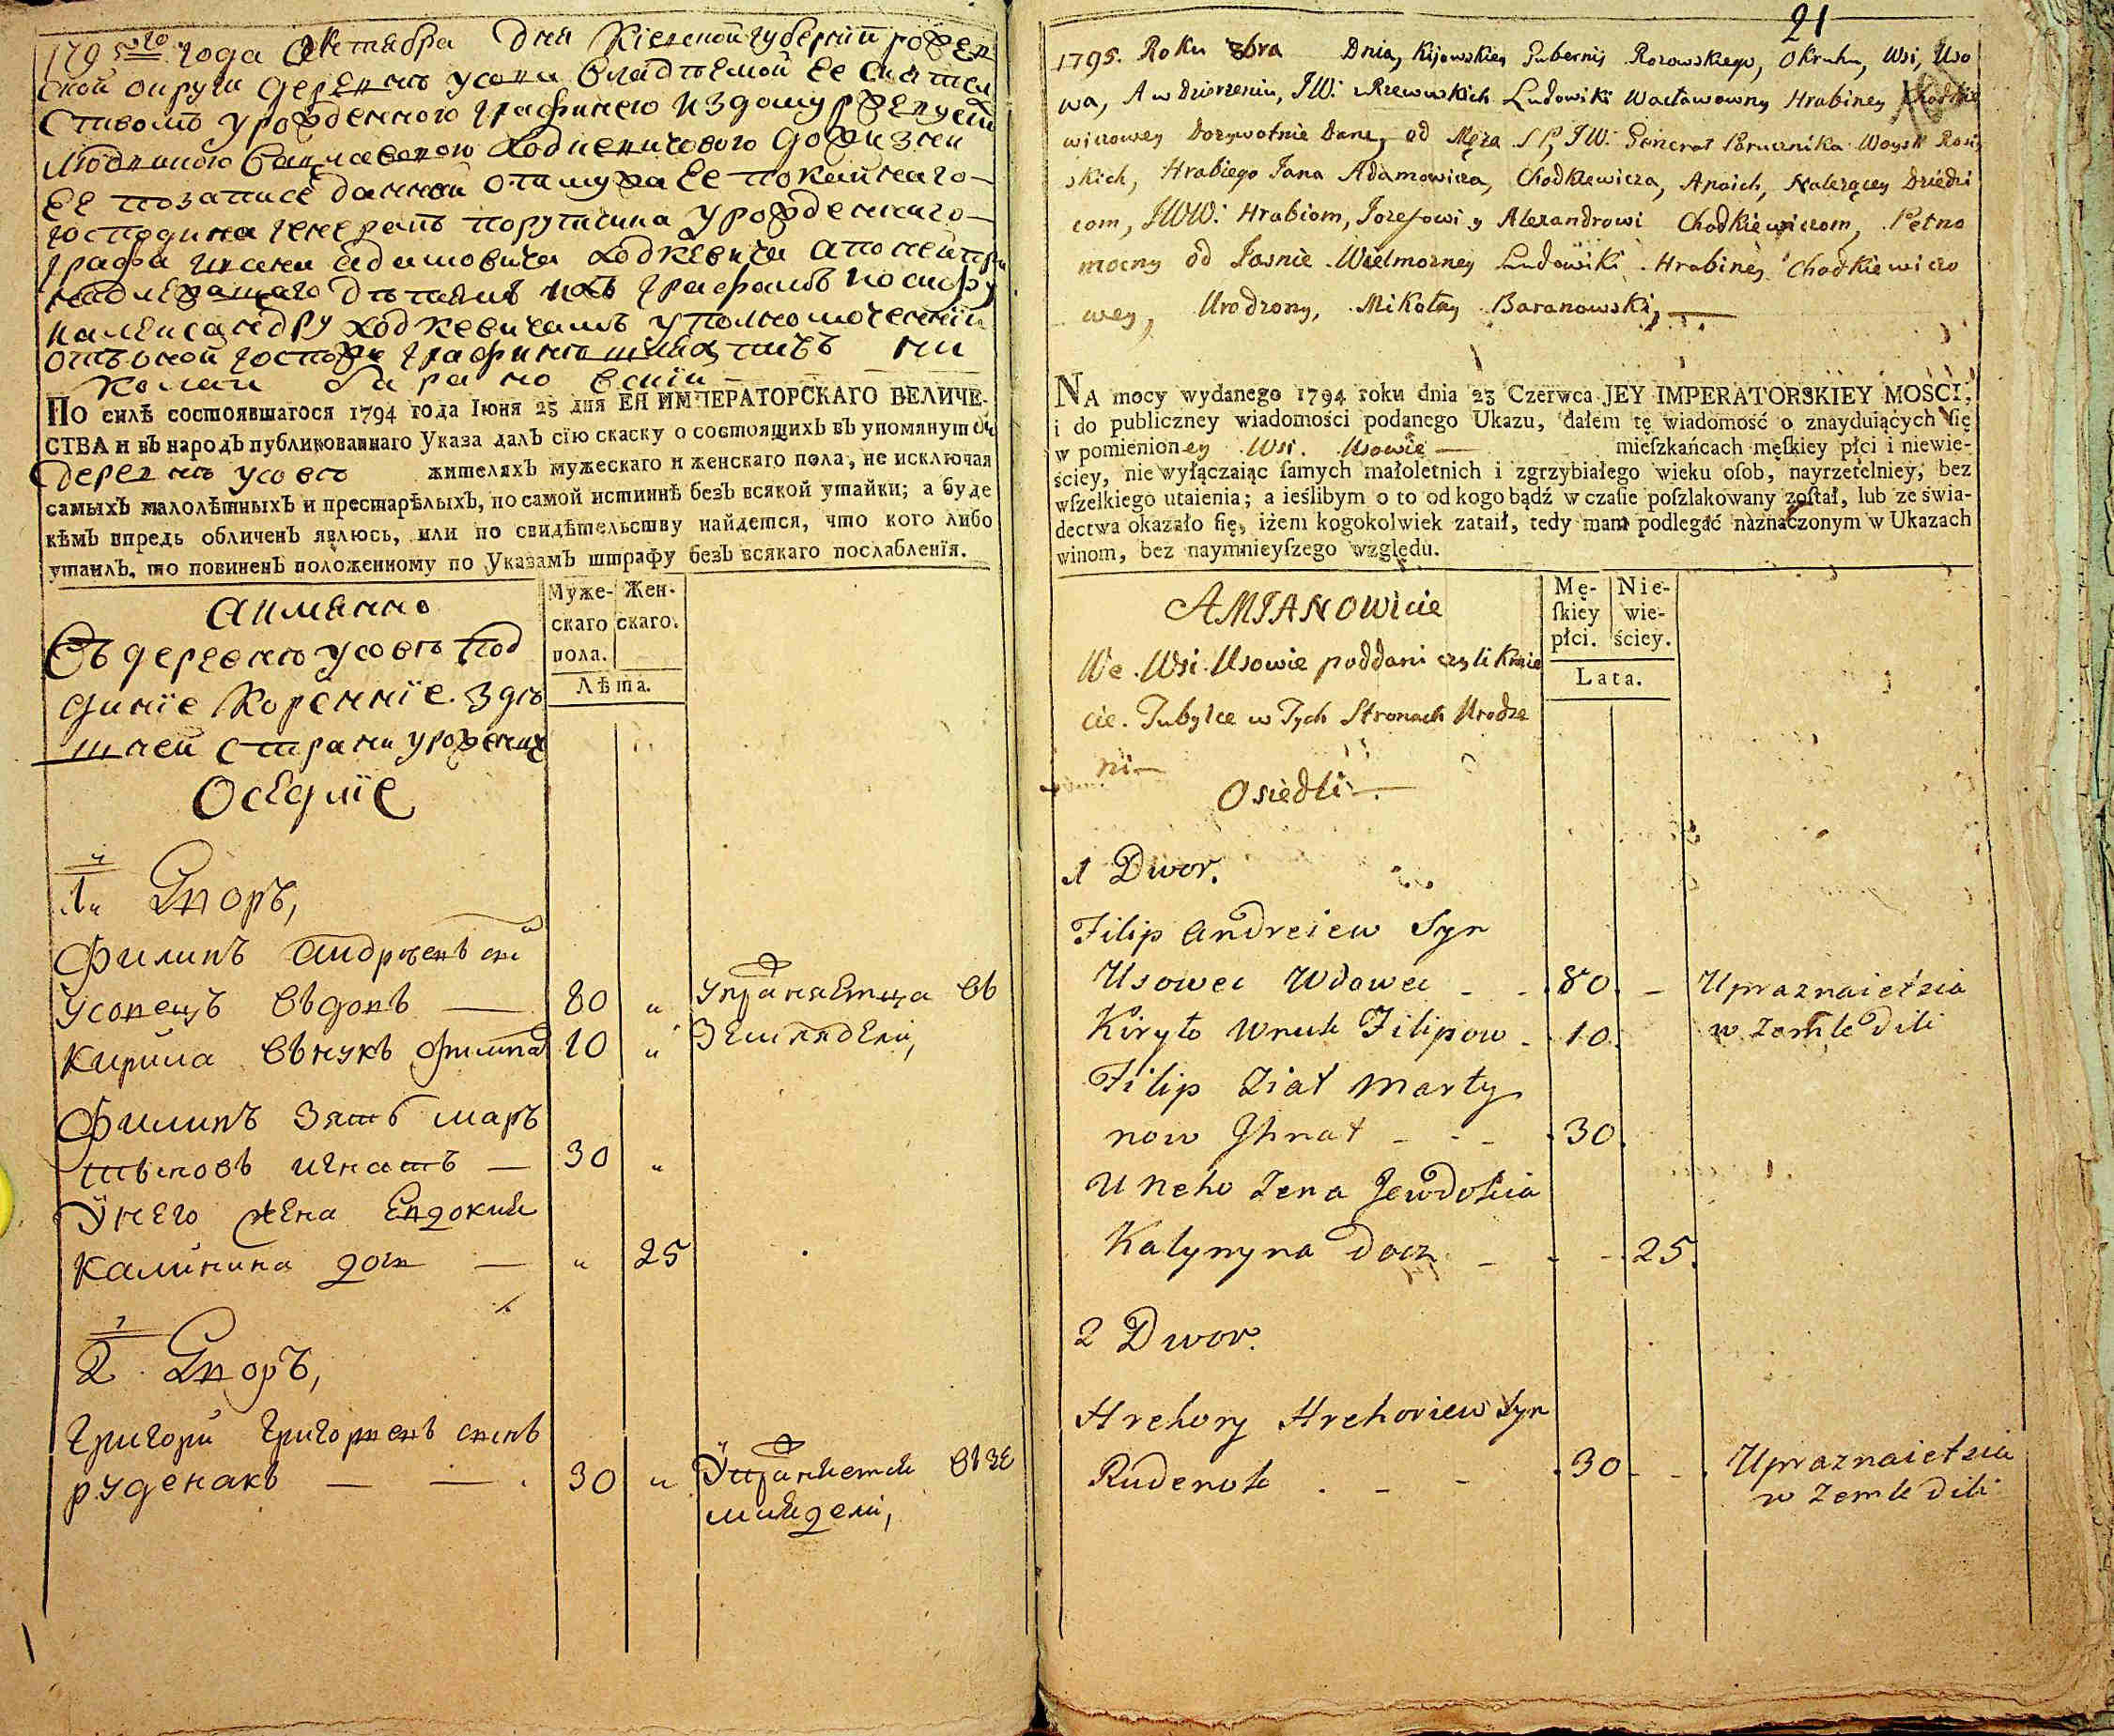 1795го года Октября Дня Кіевской губерніи рожев
ской округи деревнѣ усови владѣемой Ее Сіятел
ством урожденного графинею Издому ржевуск
Людвикою вацлавовною Ходкевичового дожизнен
Ее позаписе данной отмужа Ее покойнаго
господина генералъ порутчика урожденнаго
графа Ивана адамовича ходкевича апоней
надлежащаго дѣтямъ ихъ графамъ Іосифу
иалександру ходкевичамъ уполномоченній
отъоной госпожи графинѣ шляхтичъ ни
колай барановскій
ПО силѣ состоявшагося 1794 года Іюня 23 дня ЕЯ ИМПЕРАТОРСКАГО ВЕЛИЧЕ-
СТВА и въ народъ публикованнаго Указа далъ сію скаску о состоящихъ въ упомянутой
деревнѣ усовѣ жителяхъ мужескаго и женскаго пола, не исключая
самыхъ малолѣтныхъ и престарѣлыхъ, по самой истиннѣ безъ всякой утайки; а буде
кѣмъ впредь обличенъ явлюсь, или по свидѣтельству найдется, что кого либо
утаилъ, то повиненъ положенному по Указамъ штрафу безъ всякаго послабленія.
Аимянно
Муже-
скаго
пола.
Жен-
скаго.
Лѣта.
Въ деревнѣ усовѣ под
даніе Коренніе. Здѣ
шней страни урожених
Оседліе
1й Дворъ,
Филипъ андрѣевъ
усовецъ вѣдовъ — 80 " упражняется въ
Кирила внукъ филипа 10 " Землядели,
Филипъ Зять мар
тыновъ игнатъ — 30 "
Унего жена Евдокия
Калинина доч — " 25
2 Дворъ,
Григори Григориевъ синъ
руденакъ — — 30 " Упражняется взе
мляделі,
21
1795. Roku 8bra Dnia, Kijowskiey Gubernij Rozowskiego, Okruhu, Wsi, Uso
wa, A w dzierzeniu, JW: Rzewuskich Ludowiki Wacławowny Hrabiney Chodkie
wiczowey Dozywotnie Dane, od Męza SP, JW: General Porucznika Woysk Rosiy
skich, Hrabiego Jana Adamowicza, Chodkiewicza, Aponich, Nalezącey Dziedzi
com, JWW: Hrabiom, Jozefowi y Alexandrowi Chodkiewiczom, Pełno
mocny od Jasnie Wielmozney Ludowiki Hrabiney Chodkiewiczo
wey, Urodzony, Mikołay Baranowski, —
NA mocy wydanego 1794 roku dnia 23 Czerwca JEY IMPERATORSKIEY MOSCI,
i do publiczney wiadomości podanego Ukazu, dałem tę wiadomość o znayduiących się
w pomienioney Wsi. Usowie — mieſzkańcach męſkiey płci i niewie-
ściey, nie wyłączaiąc ſamych małoletnich i zgrzybiałego wieku oſob, nayrzetelniey, bez
wſzelkiego utaienia; a ieślibym o to od kogo bądź w czaſie poſzlakowany zoſtał, lub ze świa-
dectwa okazało ſię, iżem kogokolwiek zataił, tedy mam podlegać naznaczonym w Ukazach
winom, bez naymnieyſzego względu.
AMIANOWicie
Mę-
ſkiey
płci.
Nie-
wie-
ściey.
Lata.
We Wsi Usowie poddani czyli Kmie
cie. Tubylce w Tych Stronach Urodze
ni—
Osiedli —
1 Dwor.
Filip Andreiew Syn
Usowec Wdowec - - 80. - Upraznaietsia
Kiryło Wnuk Filipow - 10. w Zemle Dili
Filip Ziat Marty
now Ihnat - - - 30.
U Neho Zena Jewdokia
Kalynyna Docz - - - 25.
2 Dwor.
Hrehory Hrehoriew Syn
Rudenok . - - 30 - - Upraznaietsia
w Zemle Dili